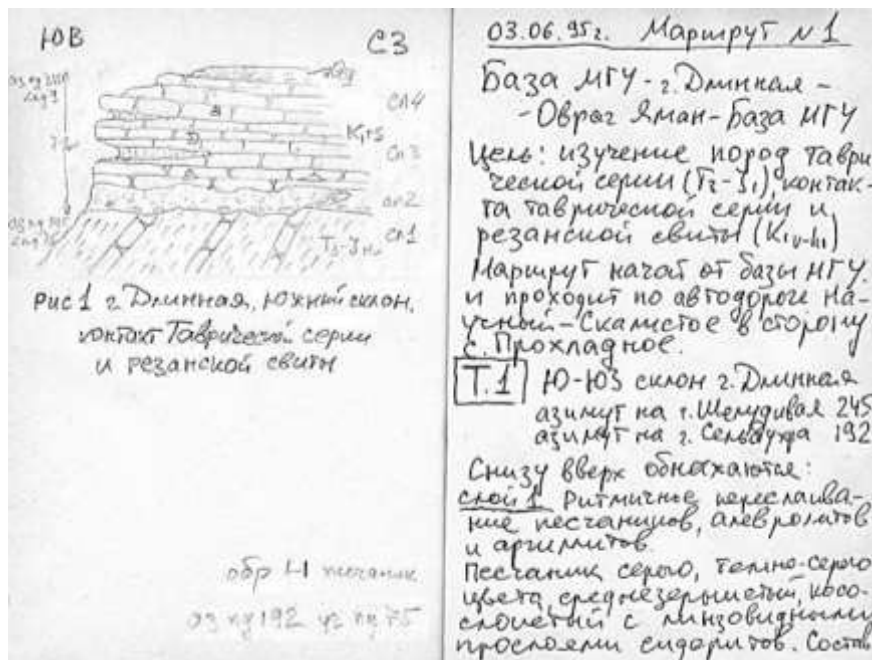 ЮВ
СЗ
сл4
K₁v-
сл3
сл2
T₃-J₁
сл1
Рис 1 г. Длинная, южный склон,
контакт Таврической серии
и резанской свиты
обр 1-1 песчаник
оз пд 192 уг пд 75
03.06.95г. Маршрут N1
База МГУ - г. Длинная -
- Овраг Яман - База МГУ
Цель: изучение пород Таври
ческой серии (T₂-J₁), контак-
та таврической серии и
резанской свиты (K₁v-h₁)
Маршрут начат от базы МГУ.
и проходит по автодороге На-
учный - Скалистое в сторону
с. Прохладное.
Т.1 Ю-ЮЗ склон г. Длинная
азимут на г. Шелудивая 245
азимут на г. Сельбухра 192
Снизу вверх обнажаются:
слой 1 Ритмичное переслаива-
ние песчаников, алевролитов
и аргиллитов.
Песчаник серого, темно-серого
цвета, среднезернистый, косо-
слоистый с линзовидными
прослоями сидеритов. Состав